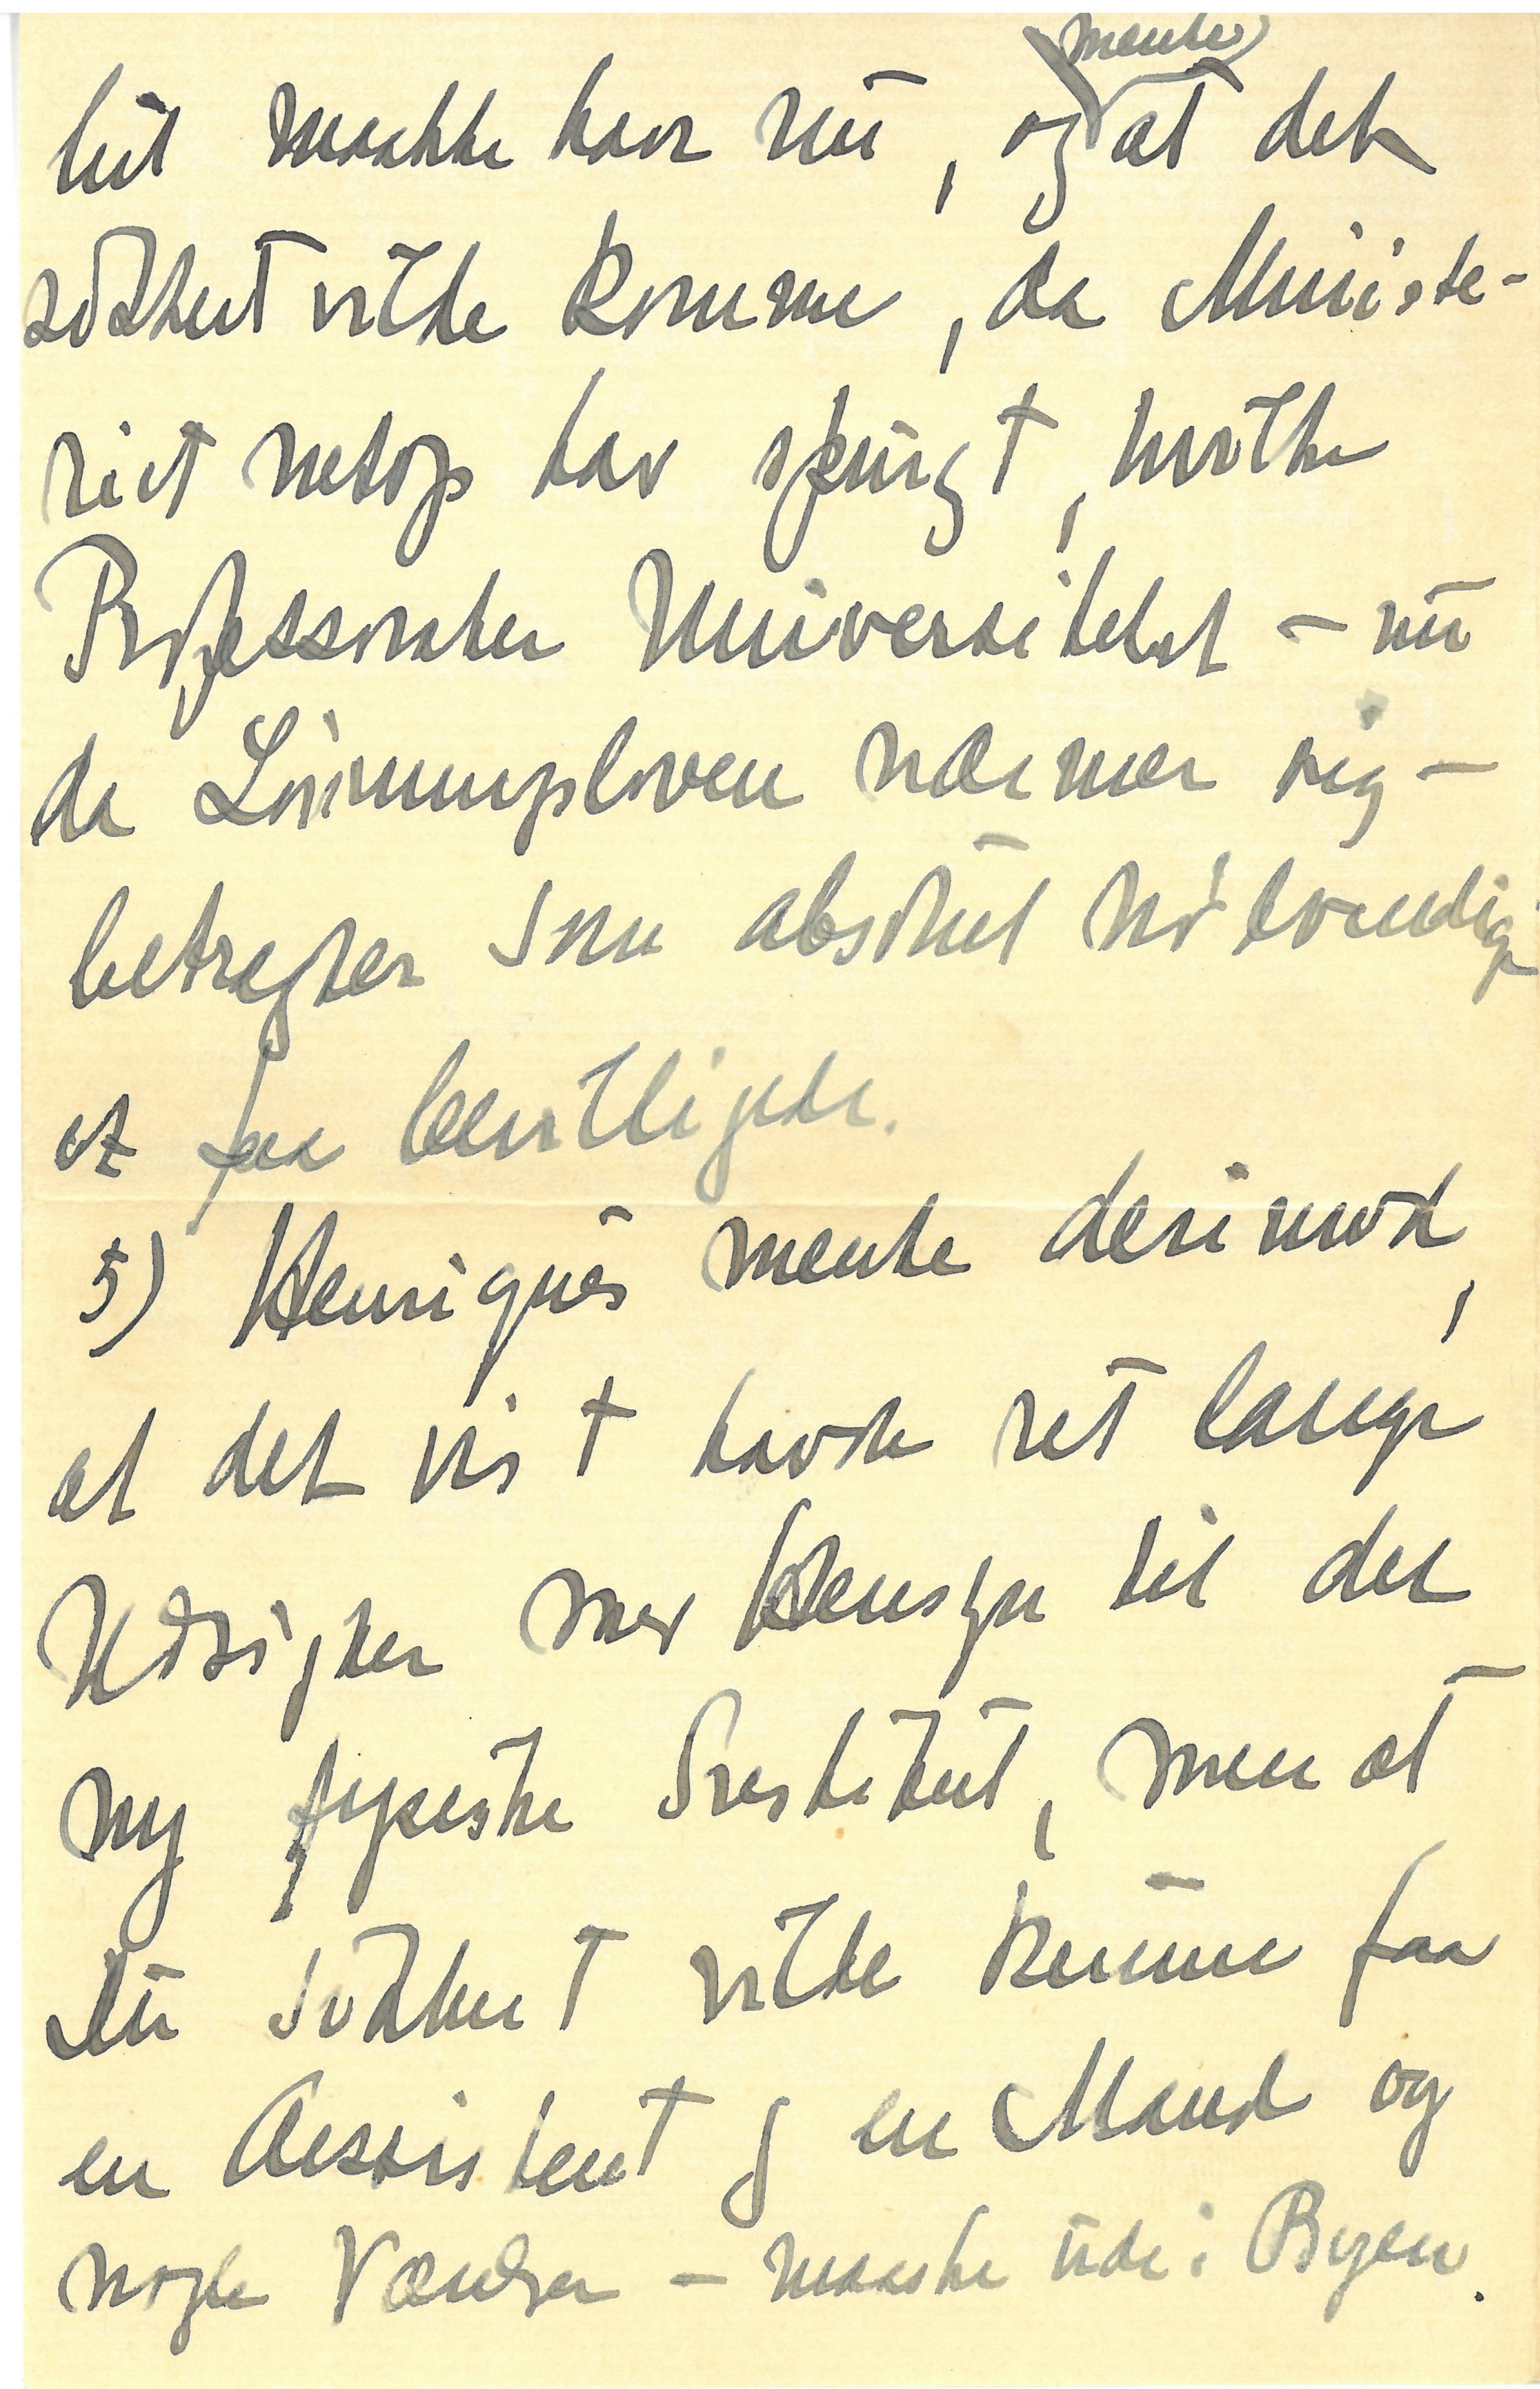 lut maatte have nu, og mente at det
sikkert vilde komme, da Ministe-
riet netop har spurgt, hvilke
Professorater Universitetet – nu
da Lønningsloven nærmer sig –
betragter som absolut nødvendig
at faa bevilligede.
5) Henriques mente derimod,
at det vist havde ret lange
Udsigter med Hensyn til det
ny fysiske Institut, men at
Du sikkert vilde kunne faa
en Assistent og en Mand og
nogle Værelser – maaske ude i Byen.